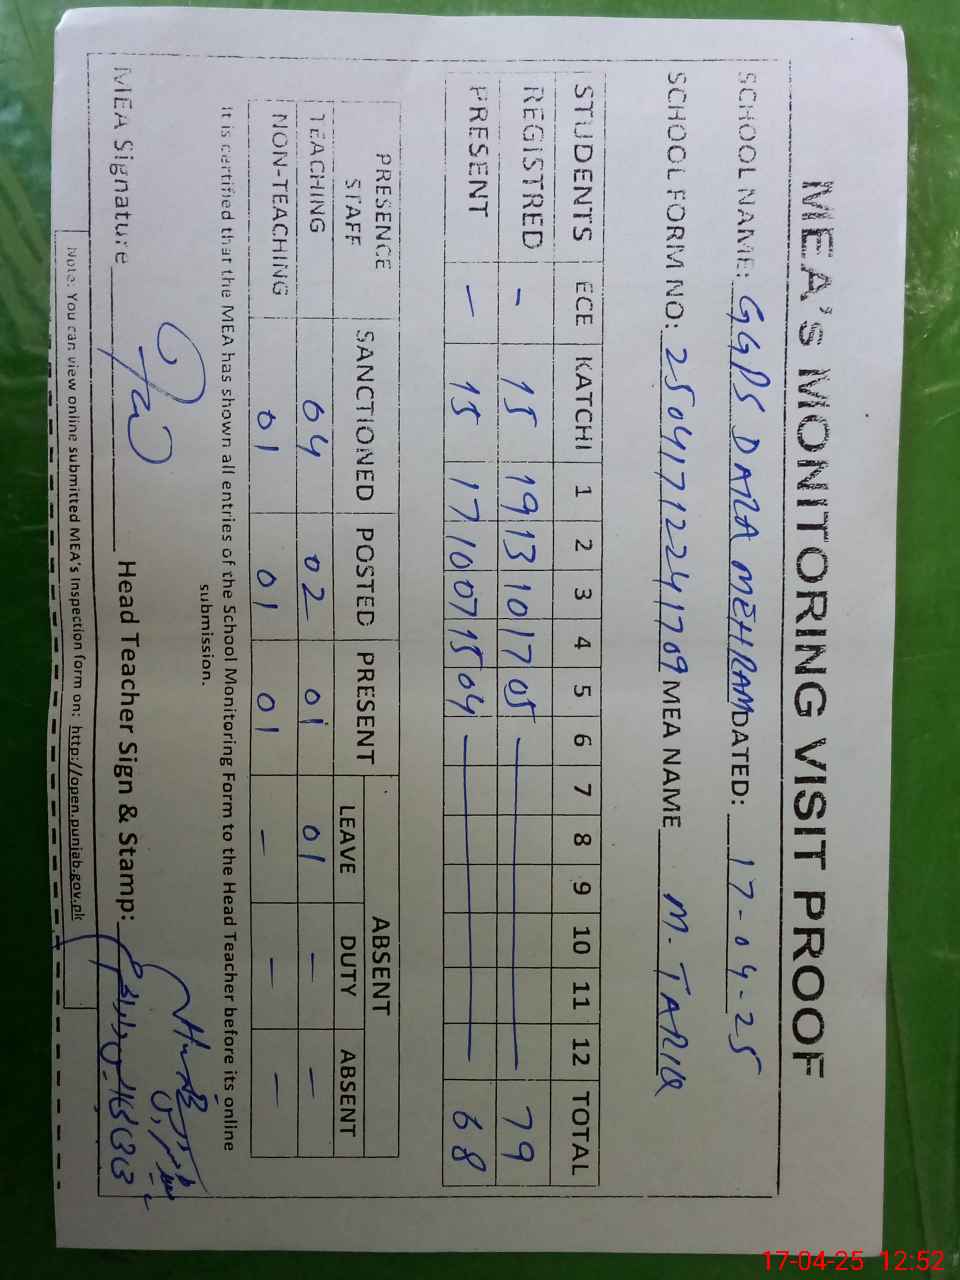 MEA's MONITORING VISIT PROOF
SCHOOL NAME: GGPS DARA MEHRAM DATED: 17-04-25
SCHOOL FORM NO: 25041712241709 MEA NAME M. TARIQ
STUDENTS ECE KATCHI 1 2 3 4 5 6 7 8 9 10 11 12 TOTAL
REGISTRED - 15 19 13 10 17 05 — 79
PRESENT - 15 17 10 07 15 04 — 68
PRESENCE STAFF SANCTIONED POSTED PRESENT ABSENT
LEAVE DUTY ABSENT
TEACHING 04 02 01 01 - -
NON-TEACHING 01 01 01 - - -
It is certified that the MEA has shown all entries of the School Monitoring Form to the Head Teacher before its online
submission.
MEA Signature Head Teacher Sign & Stamp:
Note: You can view online submitted MEA's Inspection form on: http://open.punjab.gov.pk
17-04-25 12:52